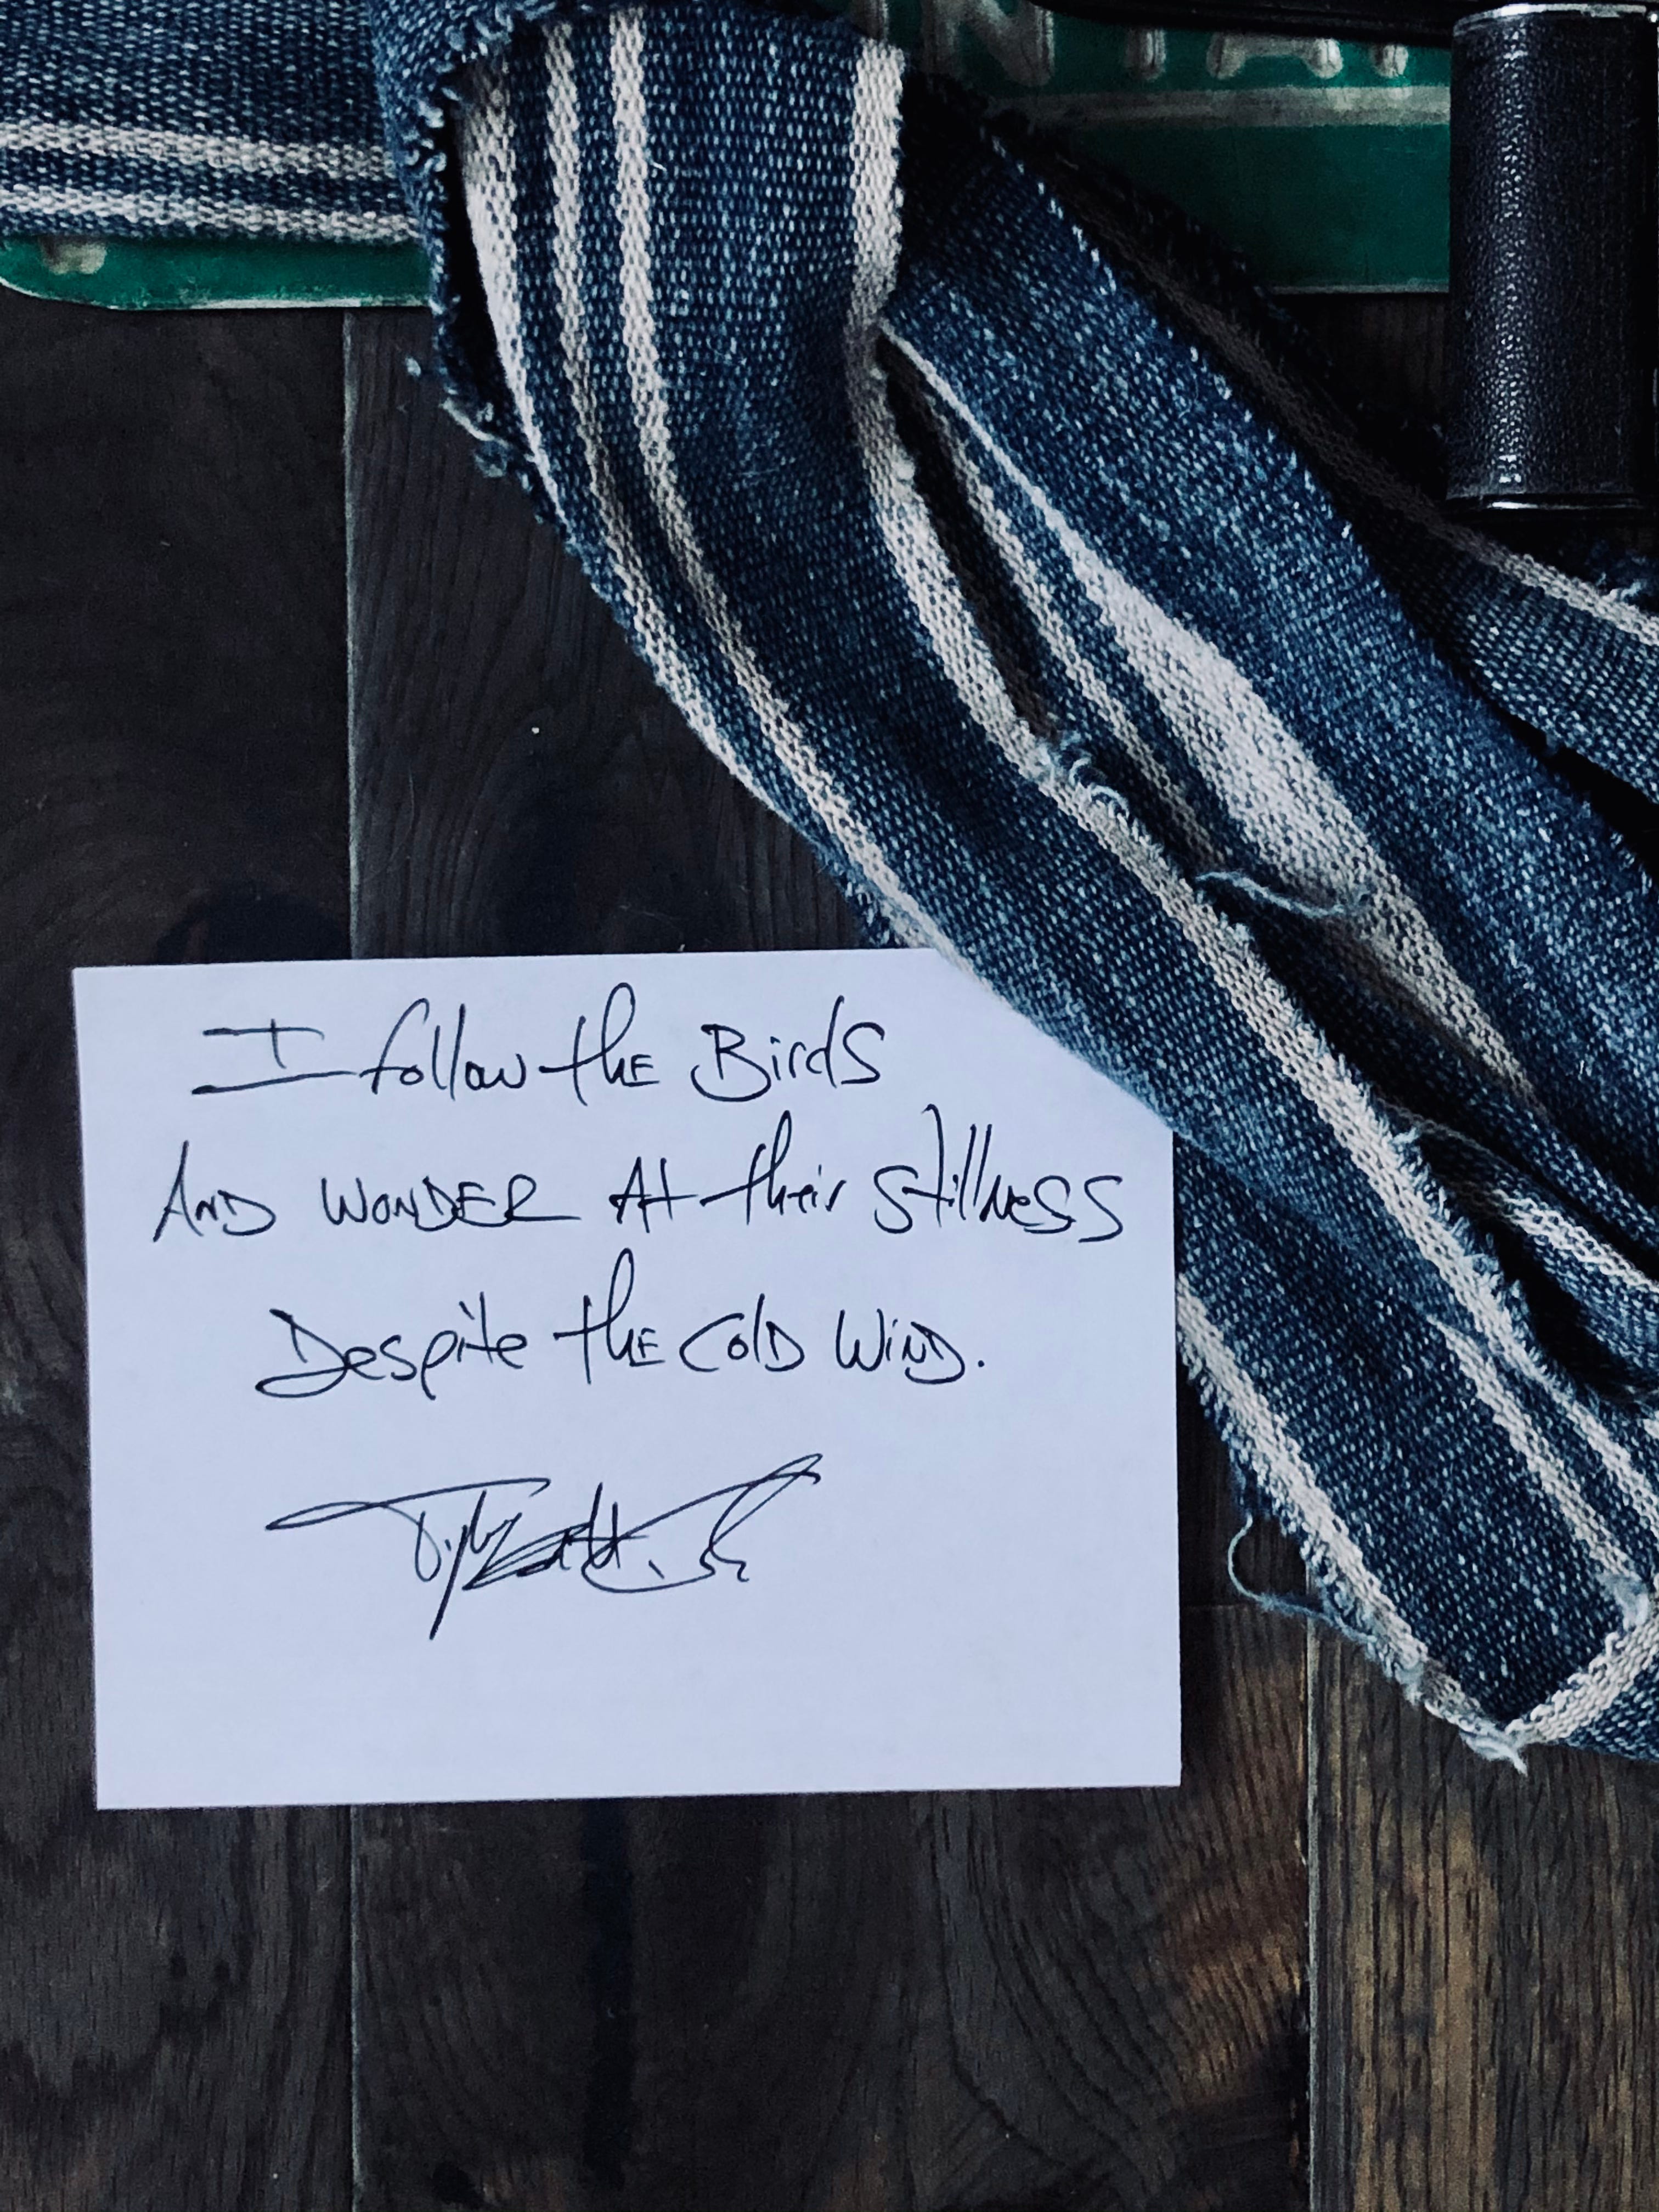 I follow the Birds
And WONDER At their stillness
Despite the cold Wind.